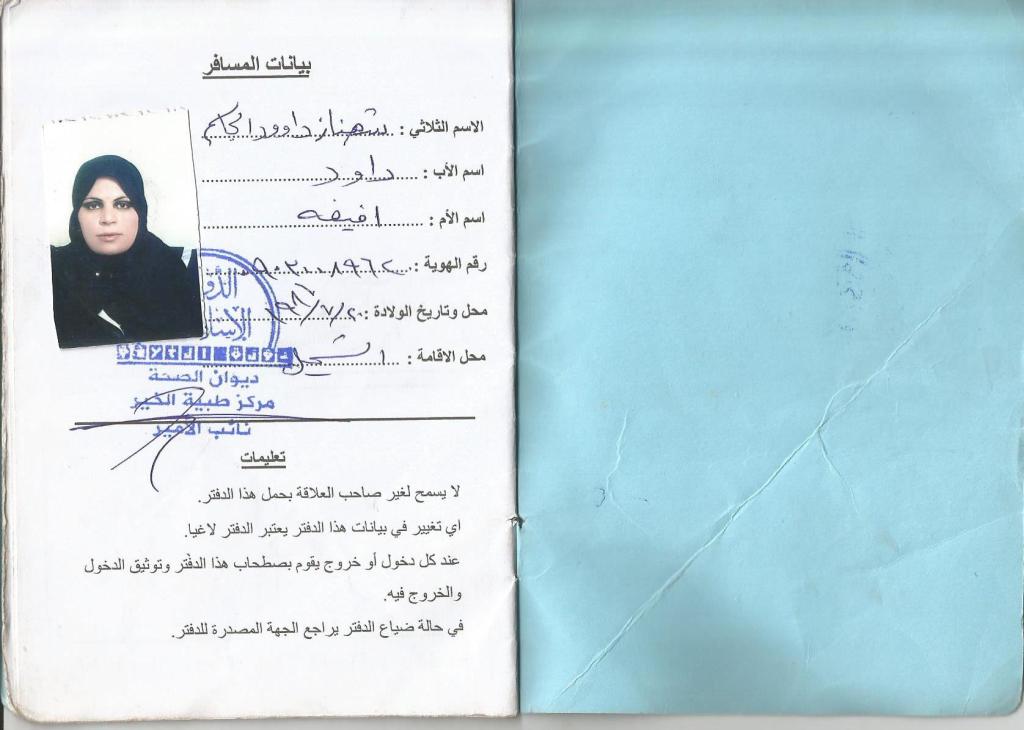 بيانات المسافر
الاسم الثلاثي : شهناز داوود
اسم الأب : داود
اسم الأم :
رقم الهوية :
محل وتاريخ الولادة :
محل الاقامة :
ديوان الصحة
مركز طبية الخير
نائب الأمير
تعليمات
لا يسمح لغير صاحب العلاقة بحمل هذا الدفتر.
اي تغيير في بيانات هذا الدفتر يعتبر الدفتر لاغيا.
عند كل دخول أو خروج يقوم بصطحاب هذا الدفتر وتوثيق الدخول
والخروج فيه.
في حالة ضياع الدفتر يراجع الجهة المصدرة للدفتر.